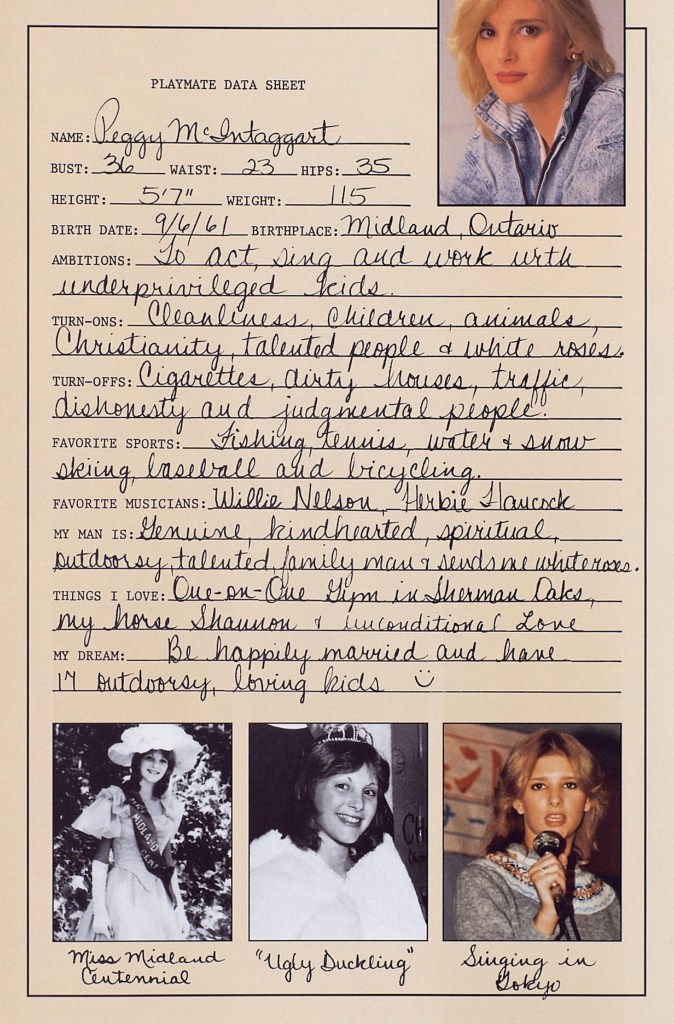 PLAYMATE DATA SHEET
NAME: Peggy McIntaggart
BUST: 36 WAIST: 23 HIPS: 35
HEIGHT: 5'7" WEIGHT: 115
BIRTH DATE: 9/6/61 BIRTHPLACE: Midland, Ontario
AMBITIONS: To act, sing and work with
underprivileged kids.
TURN-ONS: Cleanliness, children, animals,
Christianity, talented people & white roses.
TURN-OFFS: Cigarettes, dirty houses, traffic,
dishonesty and judgmental people.
FAVORITE SPORTS: Fishing, tennis, water & snow
skiing, baseball and bicycling.
FAVORITE MUSICIANS: Willie Nelson, Herbie Hancock
MY MAN IS: Genuine, kindhearted, spiritual,
outdoorsy, talented, family man & sends me white roses.
THINGS I LOVE: One-on-One Gym in Sherman Oaks,
my horse Shannon & unconditional Love
MY DREAM: Be happily married and have
17 outdoorsy, loving kids
MIDLAND
Miss Midland
Centennial
"Ugly Duckling"
Singing in
Tokyo